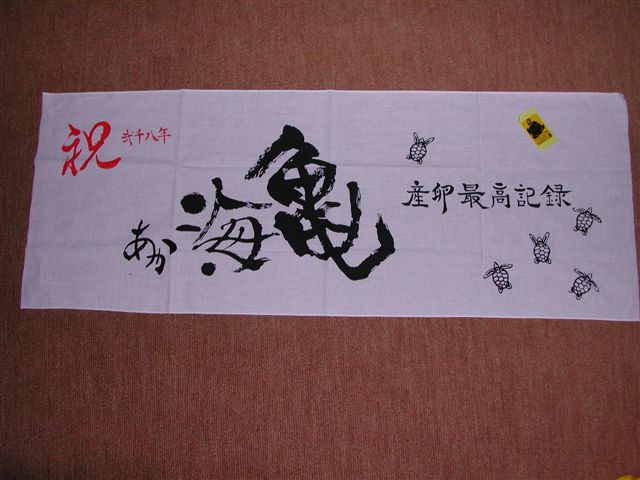 祝 弐千八年
あか海亀
産卵最高記録